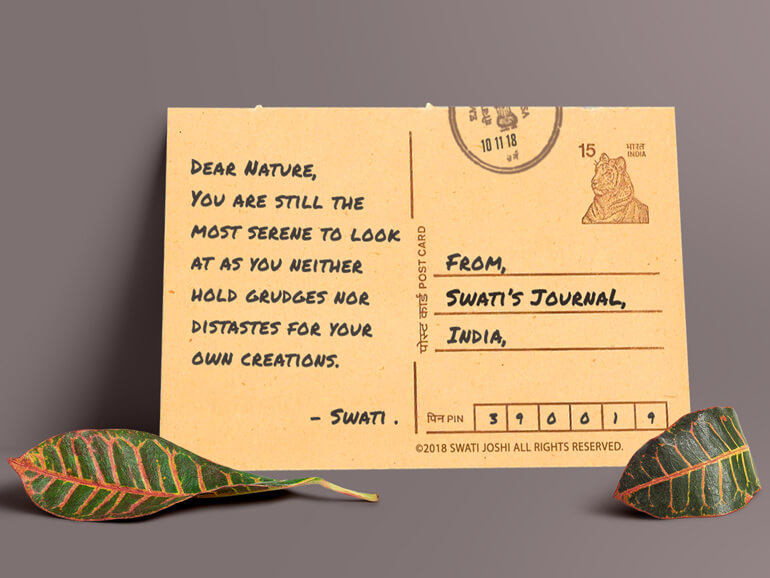 DEAR NATURE,
YOU ARE STILL THE
MOST SERENE TO LOOK
AT AS YOU NEITHER
HOLD GRUDGES NOR
DISTASTES FOR YOUR
OWN CREATIONS.
- SWATI .
10 11 18
15
भारत
INDIA
पोस्ट कार्ड POST CARD
FROM,
SWATI'S JOURNAL,
INDIA,
पिन PIN 3 9 0 0 1 9
©2018 SWATI JOSHI ALL RIGHTS RESERVED.